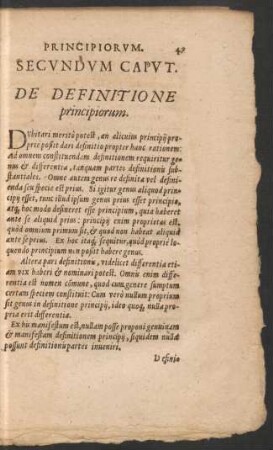 PRINCIPIORVM.
SECVNDVM CAPVT.
DE DEFINITIONE
principiorum.
DVbitari meritò potest, an alicuius principij pro-
priè possit dari definitio propter hanc rationem:
Ad omnem constituendam definitionem requiritur ge-
nus & differentia, tanquam partes definitionis sub-
stantiales. Omne autem genus re definita vel defini-
enda seu specie est prius. Si igitur genus aliquod princi-
pij esset, tunc illud ipsum genus prius esset principio,
atq, hoc modo desineret esse principium, quia haberet
ante se aliquid prius: principij enim proprietas est,
quòd omnium primum sit, & quod non habeat aliquid
ante se prius. Ex hoc itaq, sequitur, quod propriè lo-
quendo principium non possit habere genus.
Altera pars definitionis, videlicet differentia eti-
am vix haberi & nominari potest. Omnis enim diffe-
rentia est nomen cōmune, quod cum genere sumptum
certam speciem constituit: Cum verò nullum proprium
sit genus in definitione principij, ideo quoq, nulla pro-
pria erit differentia.
Ex his manifestum est, nullam posse proponi genuinam
& manifestam definitionem principij, siquidem nullæ
possunt definitionis partes inueniri.
Definio